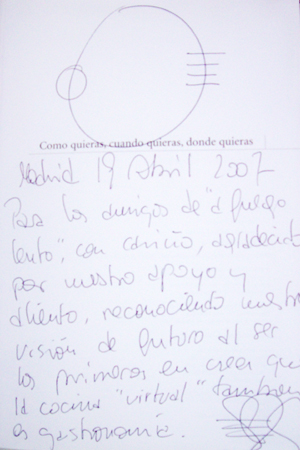 Como quieras, cuando quieras, donde quieras
Madrid 19 Abril 2007
Para los amigos de "a fuego
lento", con cariño, agradecido
por vuestro apoyo y
aliento, reconociendo vuestra
visión de futuro al ser
los primeros en creer que
la cocina "virtual" también
es gastronomía.